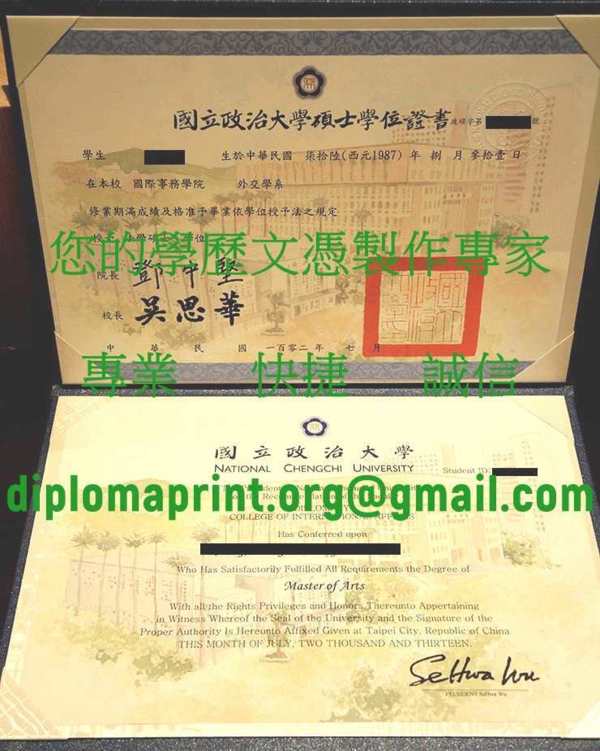 國立政治大學碩士學位證書
號
學生 生於中華民國 柒拾陸(西元1987) 年 捌 月 參拾壹 日
在本校 國際事務學院 外交學系
修業期滿成績及格准予畢業依學位授予法之規定
您的學歷文憑製作專家
院長 鄧中堅
校長 吳思華
中 華 民 國 一百零二年 七 月
專業 快捷 誠信
國立政治大學
NATIONAL CHENGCHI UNIVERSITY
Student ID:
diplomaprint.org@gmail.com
COLLEGE OF INTERNATIONAL AFFAIRS
Has Conferred upon
Who Has Satisfactorily Fulfilled All Requirements the Degree of
Master of Arts
With all the Rights Privileges and Honors Thereunto Appertaining
in Witness Whereof the Seal of the University and the Signature of the
Proper Authority Is Hereunto Affixed Given at Taipei City, Republic of China
THIS MONTH OF JULY, TWO THOUSAND AND THIRTEEN.
SeHwa Wu
PRESIDENT SeHwa Wu